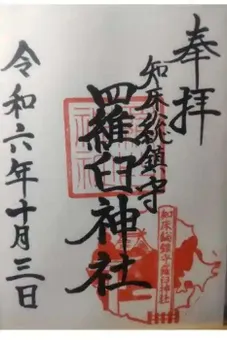 奉拝
知床総鎮守
羅臼神社
知床総鎮守羅臼神社
令和六年十月三日